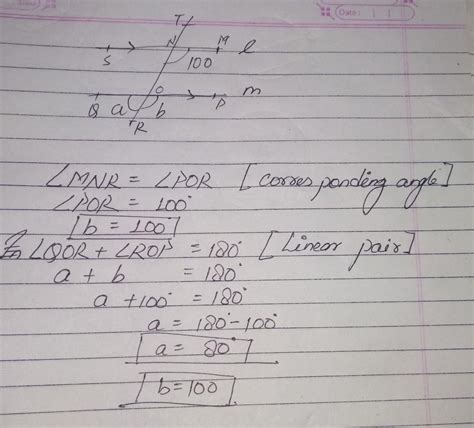 Date:
T
N M l
S 100
O m
Q a b P
R
∠MNR = ∠POR [corresponding angle]
∠POR = 100°
b = 100°
In ∠QOR + ∠ROP = 180° [Linear pair]
a + b = 180°
a + 100° = 180°
a = 180° - 100°
a = 80°
b = 100